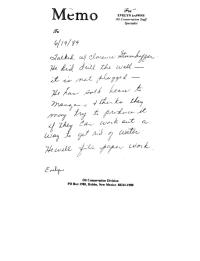 Memo
From
EVELYN DOWNS
Oil Conservation Staff
Specialist
To
6/19/94
Talked w/ Clarence
He did drill the well —
it is not plugged —
He has sold lease to
& thinks they
may try to produce it
if they can work out a
way to get rid of water
He will file paper work.
Evelyn
Oil Conservation Division
PO Box 1980, Hobbs, New Mexico 88241-1980